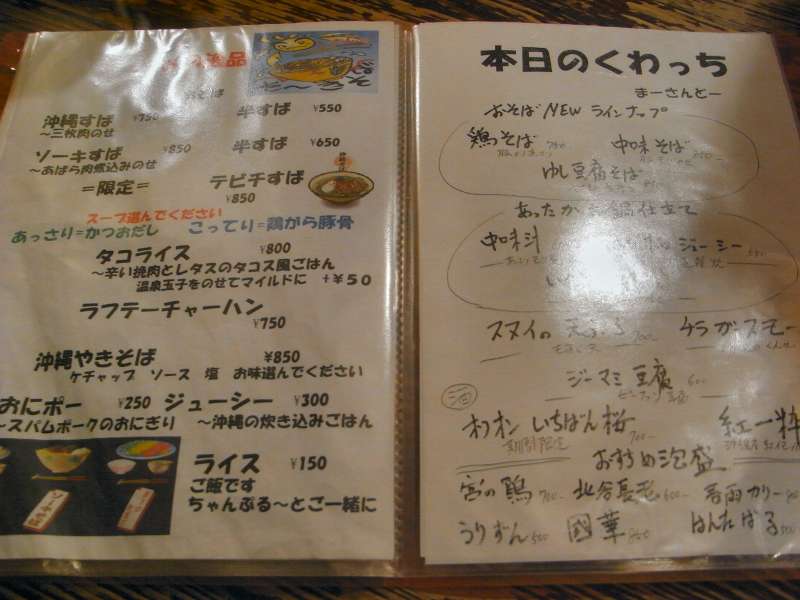 品
沖縄すば ¥750 半すば ¥550
～三枚肉のせ
ソーキすば ¥850 半すば ¥650
～あばら肉煮込みのせ
＝限定＝ テビチすば
¥850
スープ選んでください
あっさり＝かつおだし こってり＝鶏がら豚骨
タコライス ¥800
～辛い挽肉とレタスのタコス風ごはん
温泉玉子をのせてマイルドに +¥50
ラフテーチャーハン
¥750
沖縄やきそば ¥850
ケチャップ ソース 塩 お味選んでください
おにポー ¥250 ジューシー ¥300
～スパムポークのおにぎり ～沖縄の炊き込みごはん
ライス ¥150
ご飯です
ちゃんぷる～とご一緒に
本日のくわっち
まーさんどー
おそば NEW ラインナップ
鶏そば 中味そば
ゆし豆腐そば
あったか 鍋仕立て
中味汁 ジューシー
スヌイの天ぷら 700 チラガースモー
ジーマミ豆腐 600
酒
オリオン いちばん桜 700 紅一粋
期間限定
おすすめ泡盛
宮の鶴 700 北谷長老 600 春雨カリー
うりずん 500 國華 はんたばる 500